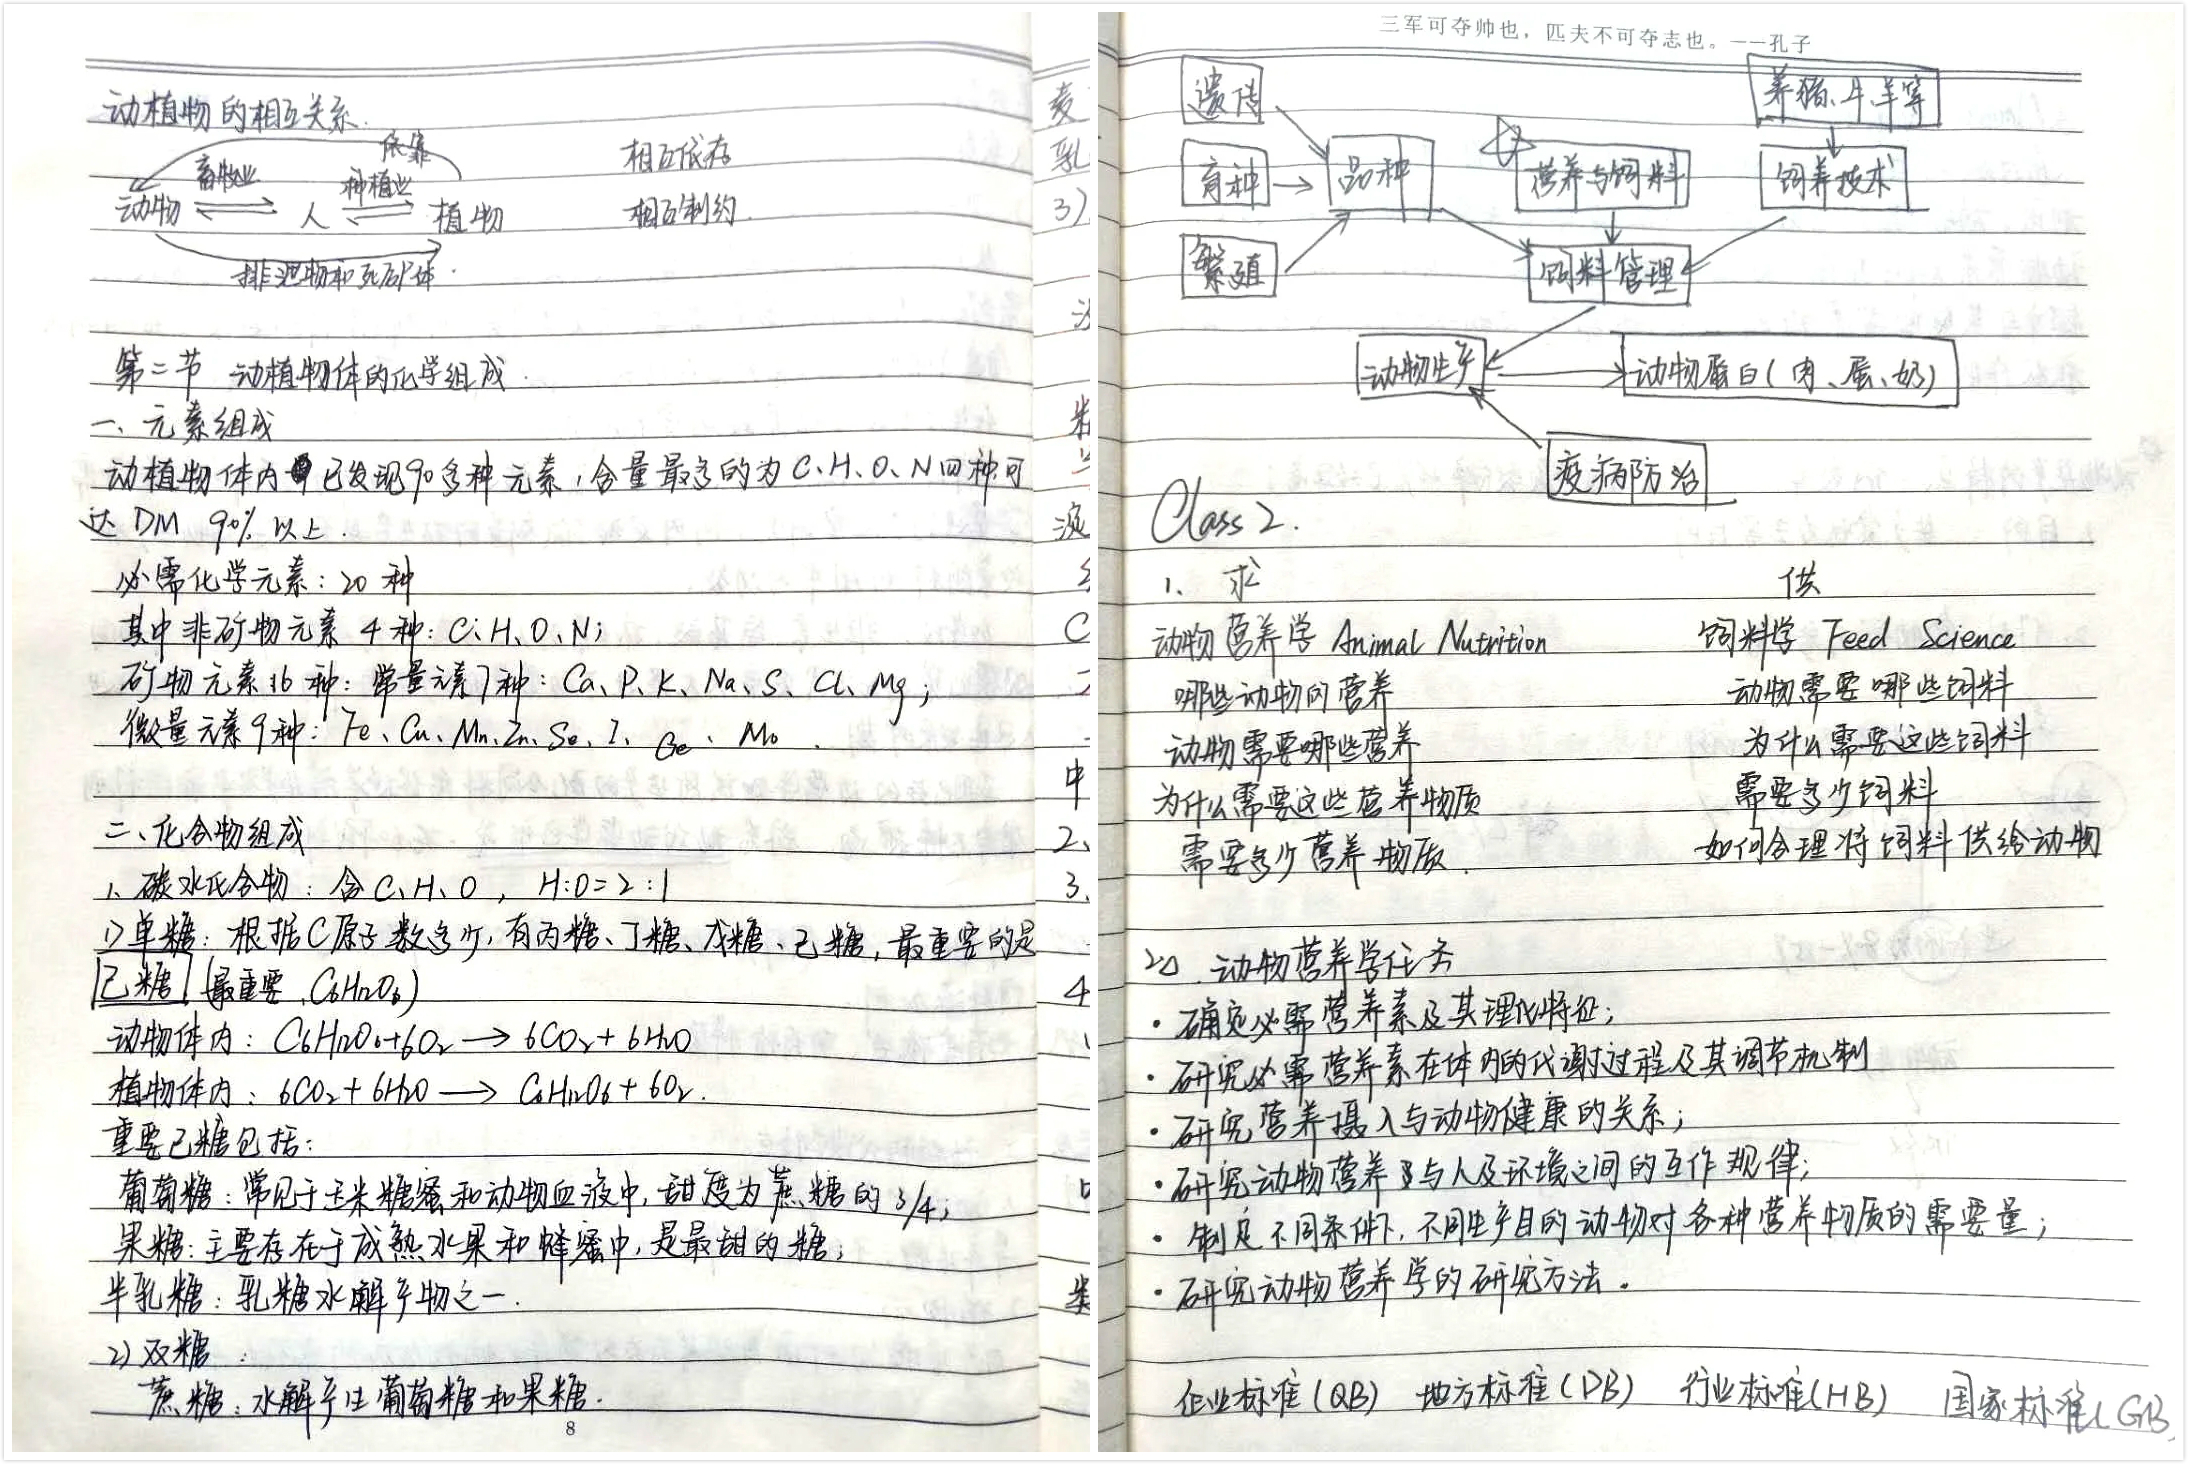 动植物的相互关系.
依靠
畜牧业 种植业
动物 人 植物
排泄物和死尸体.
相互依存
相互制约.
第二节 动植物体的化学组成.
一、元素组成
动植物体内已发现90多种元素,含量最多的为C、H、O、N四种可
达DM 90%以上.
必需化学元素:20种
其中非矿物元素4种:C、H、O、N;
矿物元素16种:常量元素7种:Ca、P、K、Na、S、Cl、Mg;
微量元素9种:Fe、Cu、Mn、Zn、Se、I、 、Mo.
二、化合物组成
1、碳水化合物:含C、H、O, H:O=2:1
1)单糖:根据C原子数多少,有丙糖、丁糖、戊糖、己糖,最重要的是
己糖(最重要、C6H12O6)
动物体内:C6H12O6+6O2→6CO2+6H2O
植物体内:6CO2+6H2O→C6H12O6+6O2.
重要己糖包括:
葡萄糖:常见于玉米糖蜜和动物血液中,甜度为蔗糖的3/4;
果糖:主要存在于成熟水果和蜂蜜中,是最甜的糖;
半乳糖:乳糖水解产物之一.
2)双糖:
蔗糖:水解产生葡萄糖和果糖.
8
麦
乳
3)
C
中
2、
3、
4
类
三军可夺帅也,匹夫不可夺志也。——孔子
遗传
养猪、牛、羊等
育种
品种
营养与饲料
饲养技术
繁殖
饲料管理
动物生产
动物蛋白(肉、蛋、奶)
疫病防治
Class 2.
1、 求 供
动物营养学 Animal Nutrition 饲料学 Feed Science
哪些动物的营养 动物需要哪些饲料
动物需要哪些营养 为什么需要这些饲料
为什么需要这些营养物质 需要多少饲料
需要多少营养物质. 如何合理将饲料供给动物
2、动物营养学任务
·确定必需营养素及其理化特征;
·研究必需营养素在体内的代谢过程及其调节机制
·研究营养摄入与动物健康的关系;
·研究动物营养与人及环境之间的互作规律;
·制定不同条件下,不同生产目的动物对各种营养物质的需要量;
·研究动物营养学的研究方法.
企业标准(QB) 地方标准(DB) 行业标准(HB) 国家标准(GB